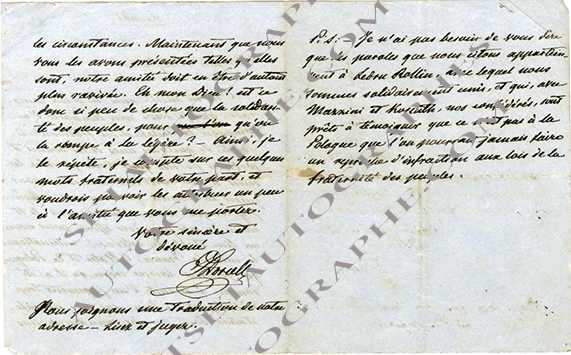 les circonstances. Maintenant que nous
vous les avons présentées telles qu'elles
sont, notre amitié doit en être d'autant
plus ravivée. Eh mon Dieu! est ce
donc si peu de chose que la solidari-
té des peuples, pour qu'on
la rompe à la légère? — Ainsi, je
le répète, je compte sur ces quelques
mots fraternels de votre part, et
voudrais pouvoir les attribuer un peu
à l'amitié que vous me portez.
Votre sincère et
dévoué
Nous joignons une Traduction de notre
adresse — Lisez et jugez.
P.S. Je n'ai pas besoin de vous dire
que les paroles que nous citons appartien-
nent à Ledru Rollin, avec lequel nous
sommes solidairement unis, et qui, avec
Mazzini et Kossuth, nos confédérés, sont
prêts à témoigner que ce n'est pas à la
Pologne que l'on pourra jamais faire
un reproche d'infraction aux lois de la
fraternité des peuples.